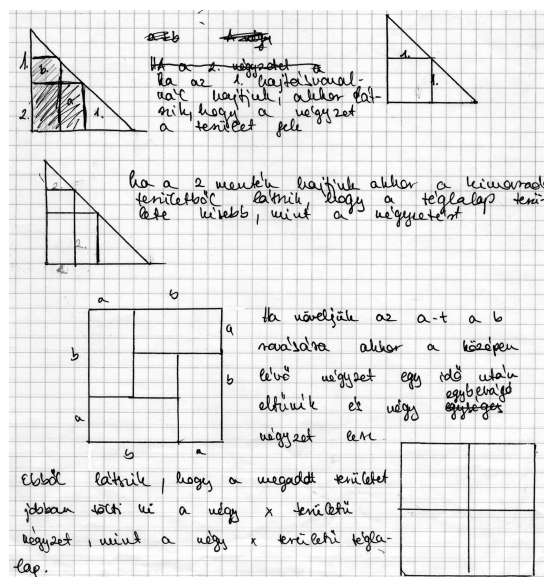 a≤b A négy
Ha a 2. négyzetet a
ha az 1. hajtásvonal-
nál hajtjuk, akkor lát-
szik, hogy a négyzet
a terület fele
1.
b.
2.
a
1.
1.
1.
ha a 2 mentén hajtjuk akkor a kimaradó
területből látszik, hogy a téglalap terü-
lete kisebb, mint a négyzetért
2
2.
2
a b
b
a
a
b
b a
Ha növeljük az a-t a b
rovására akkor a középen
lévő négyzet egy idő után
eltűnik és négy egységes egybevágó
négyzet lesz.
Ebből látszik, hogy a megadott területet
jobban tölti ki a négy x területű
négyzet, mint a négy x területű tégla-
lap.